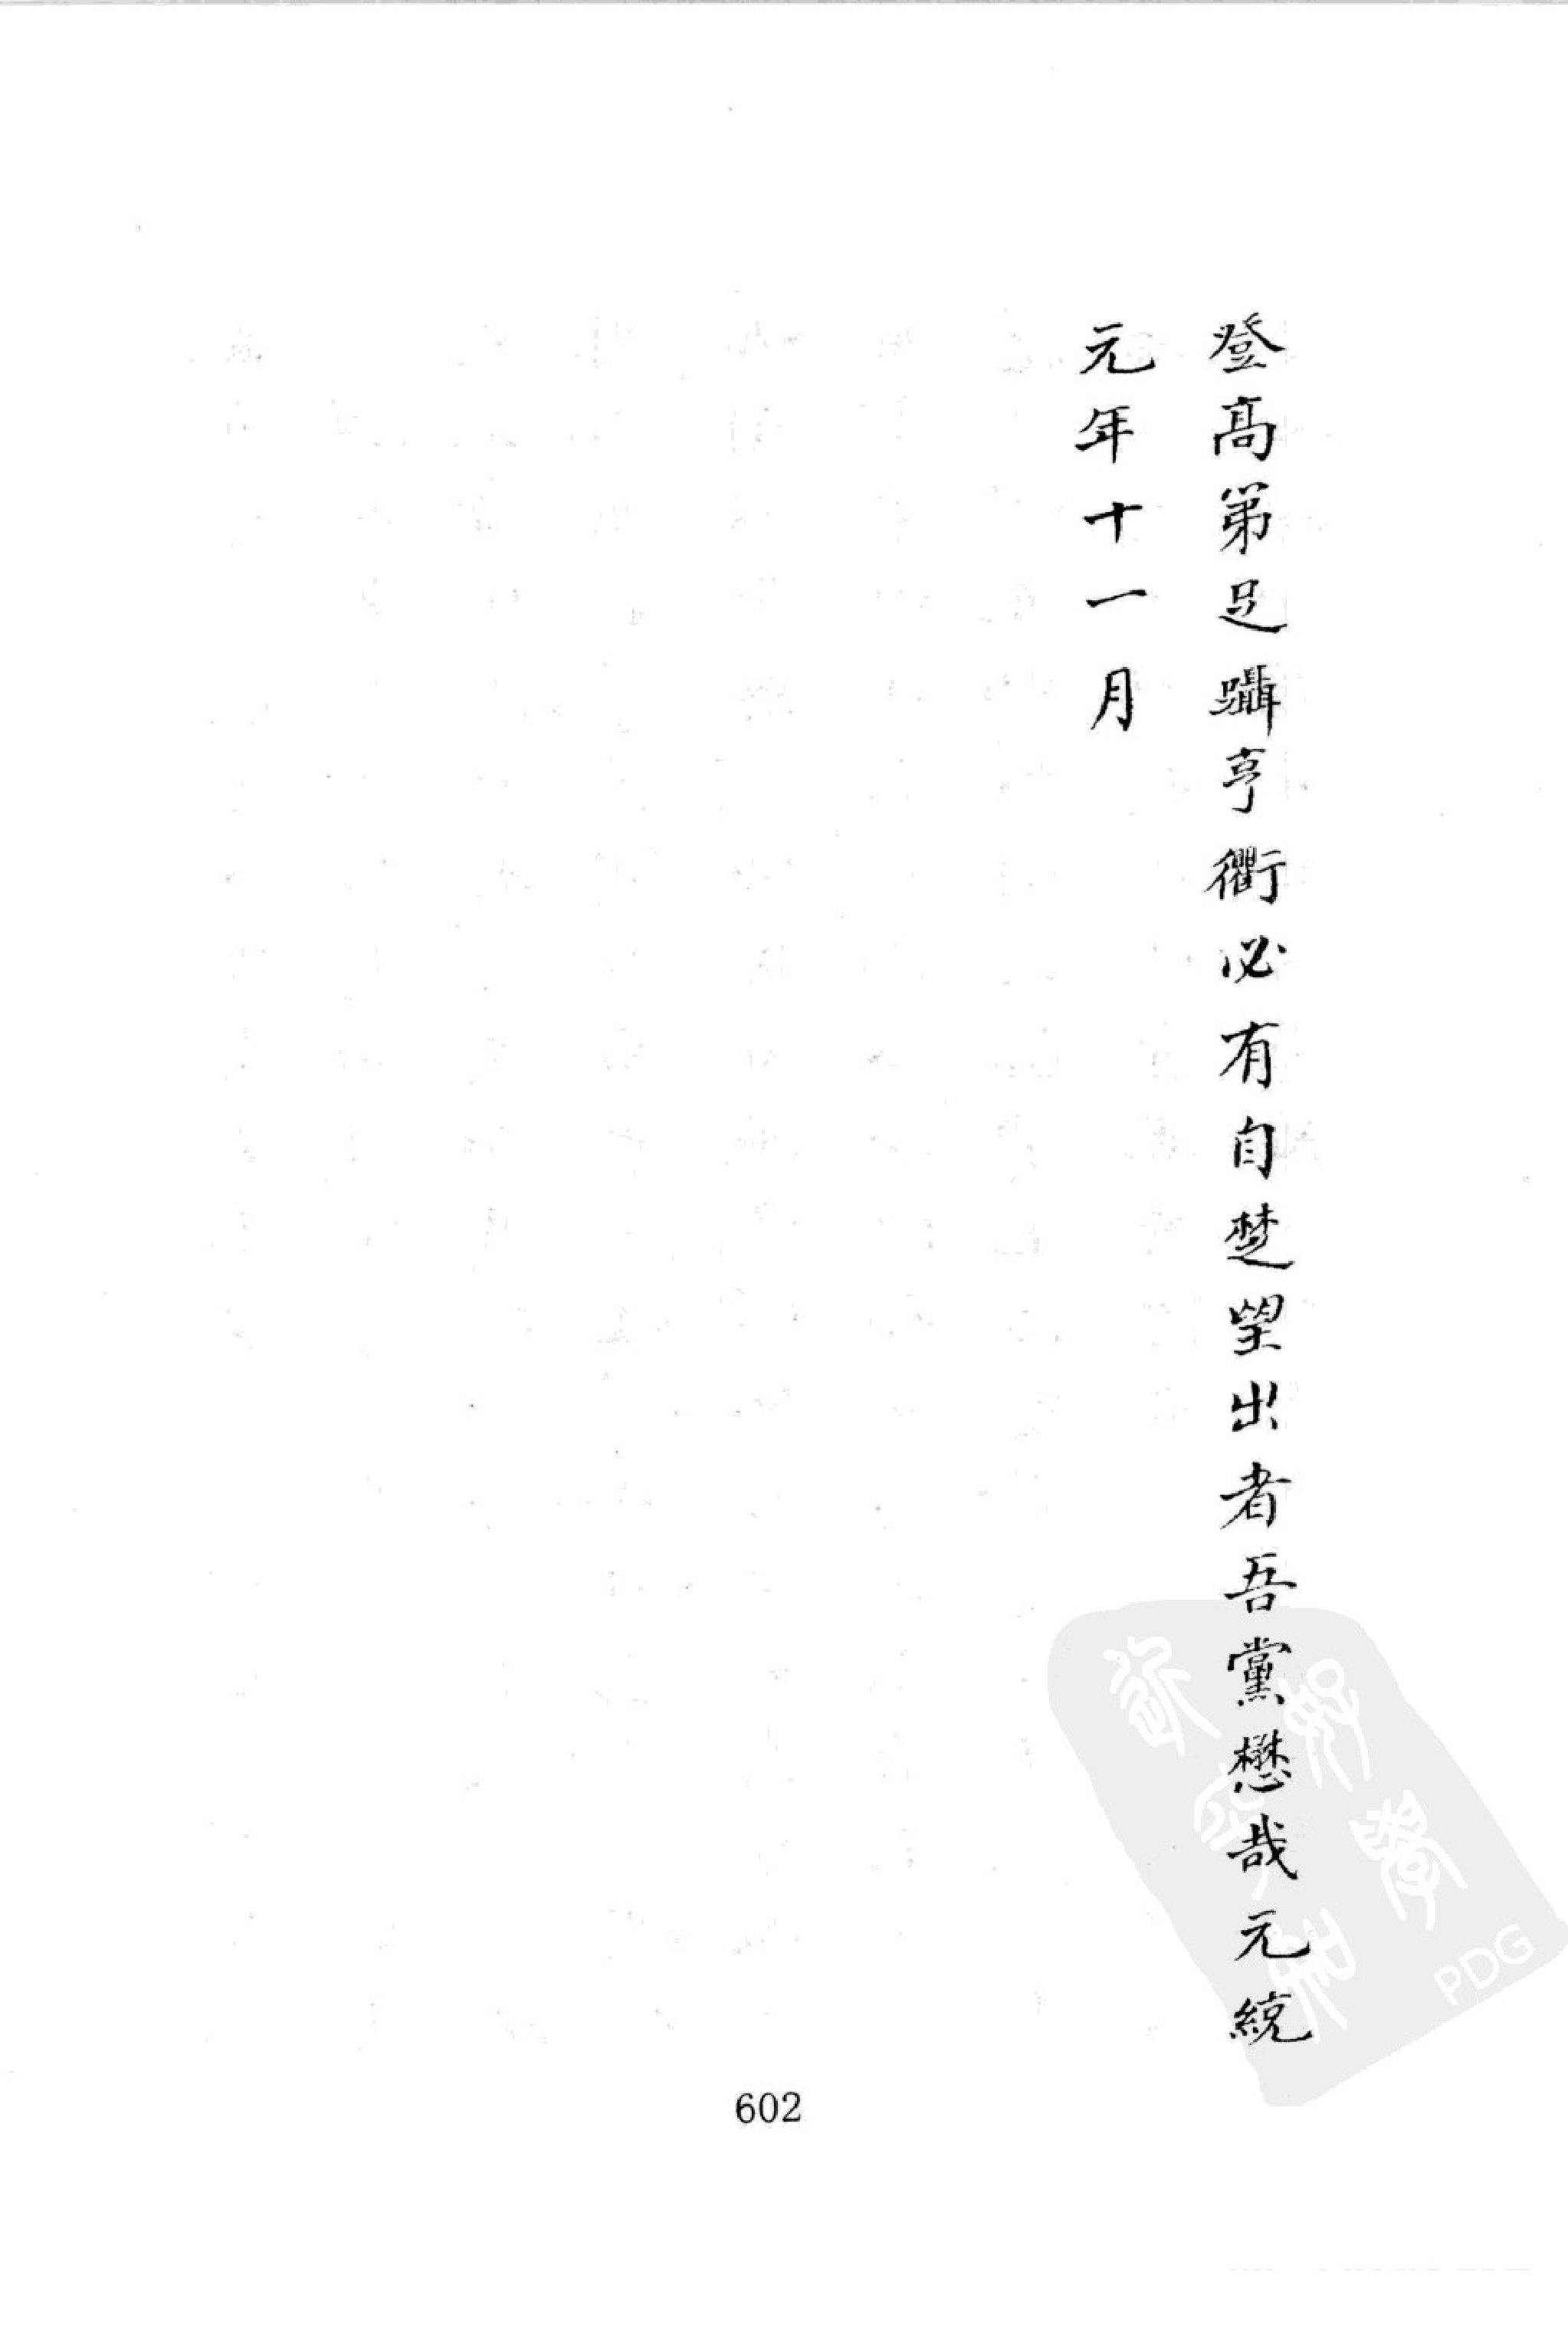 登高第足躡亨衢必有自楚望出者吾黨懋哉元統
元年十一月
602
PDG